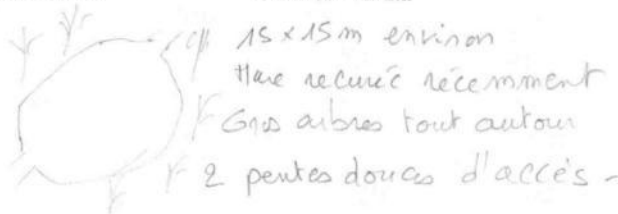 15 x 15 m environ
Mare recurée récemment
Gros arbres tout autour
2 pentes douces d'accès -